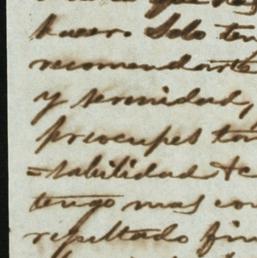 hacer. Solo ten
recomendarte
y serenidad,
preocupes tan
=tabilidad &c
tengo mas con
resultado fin